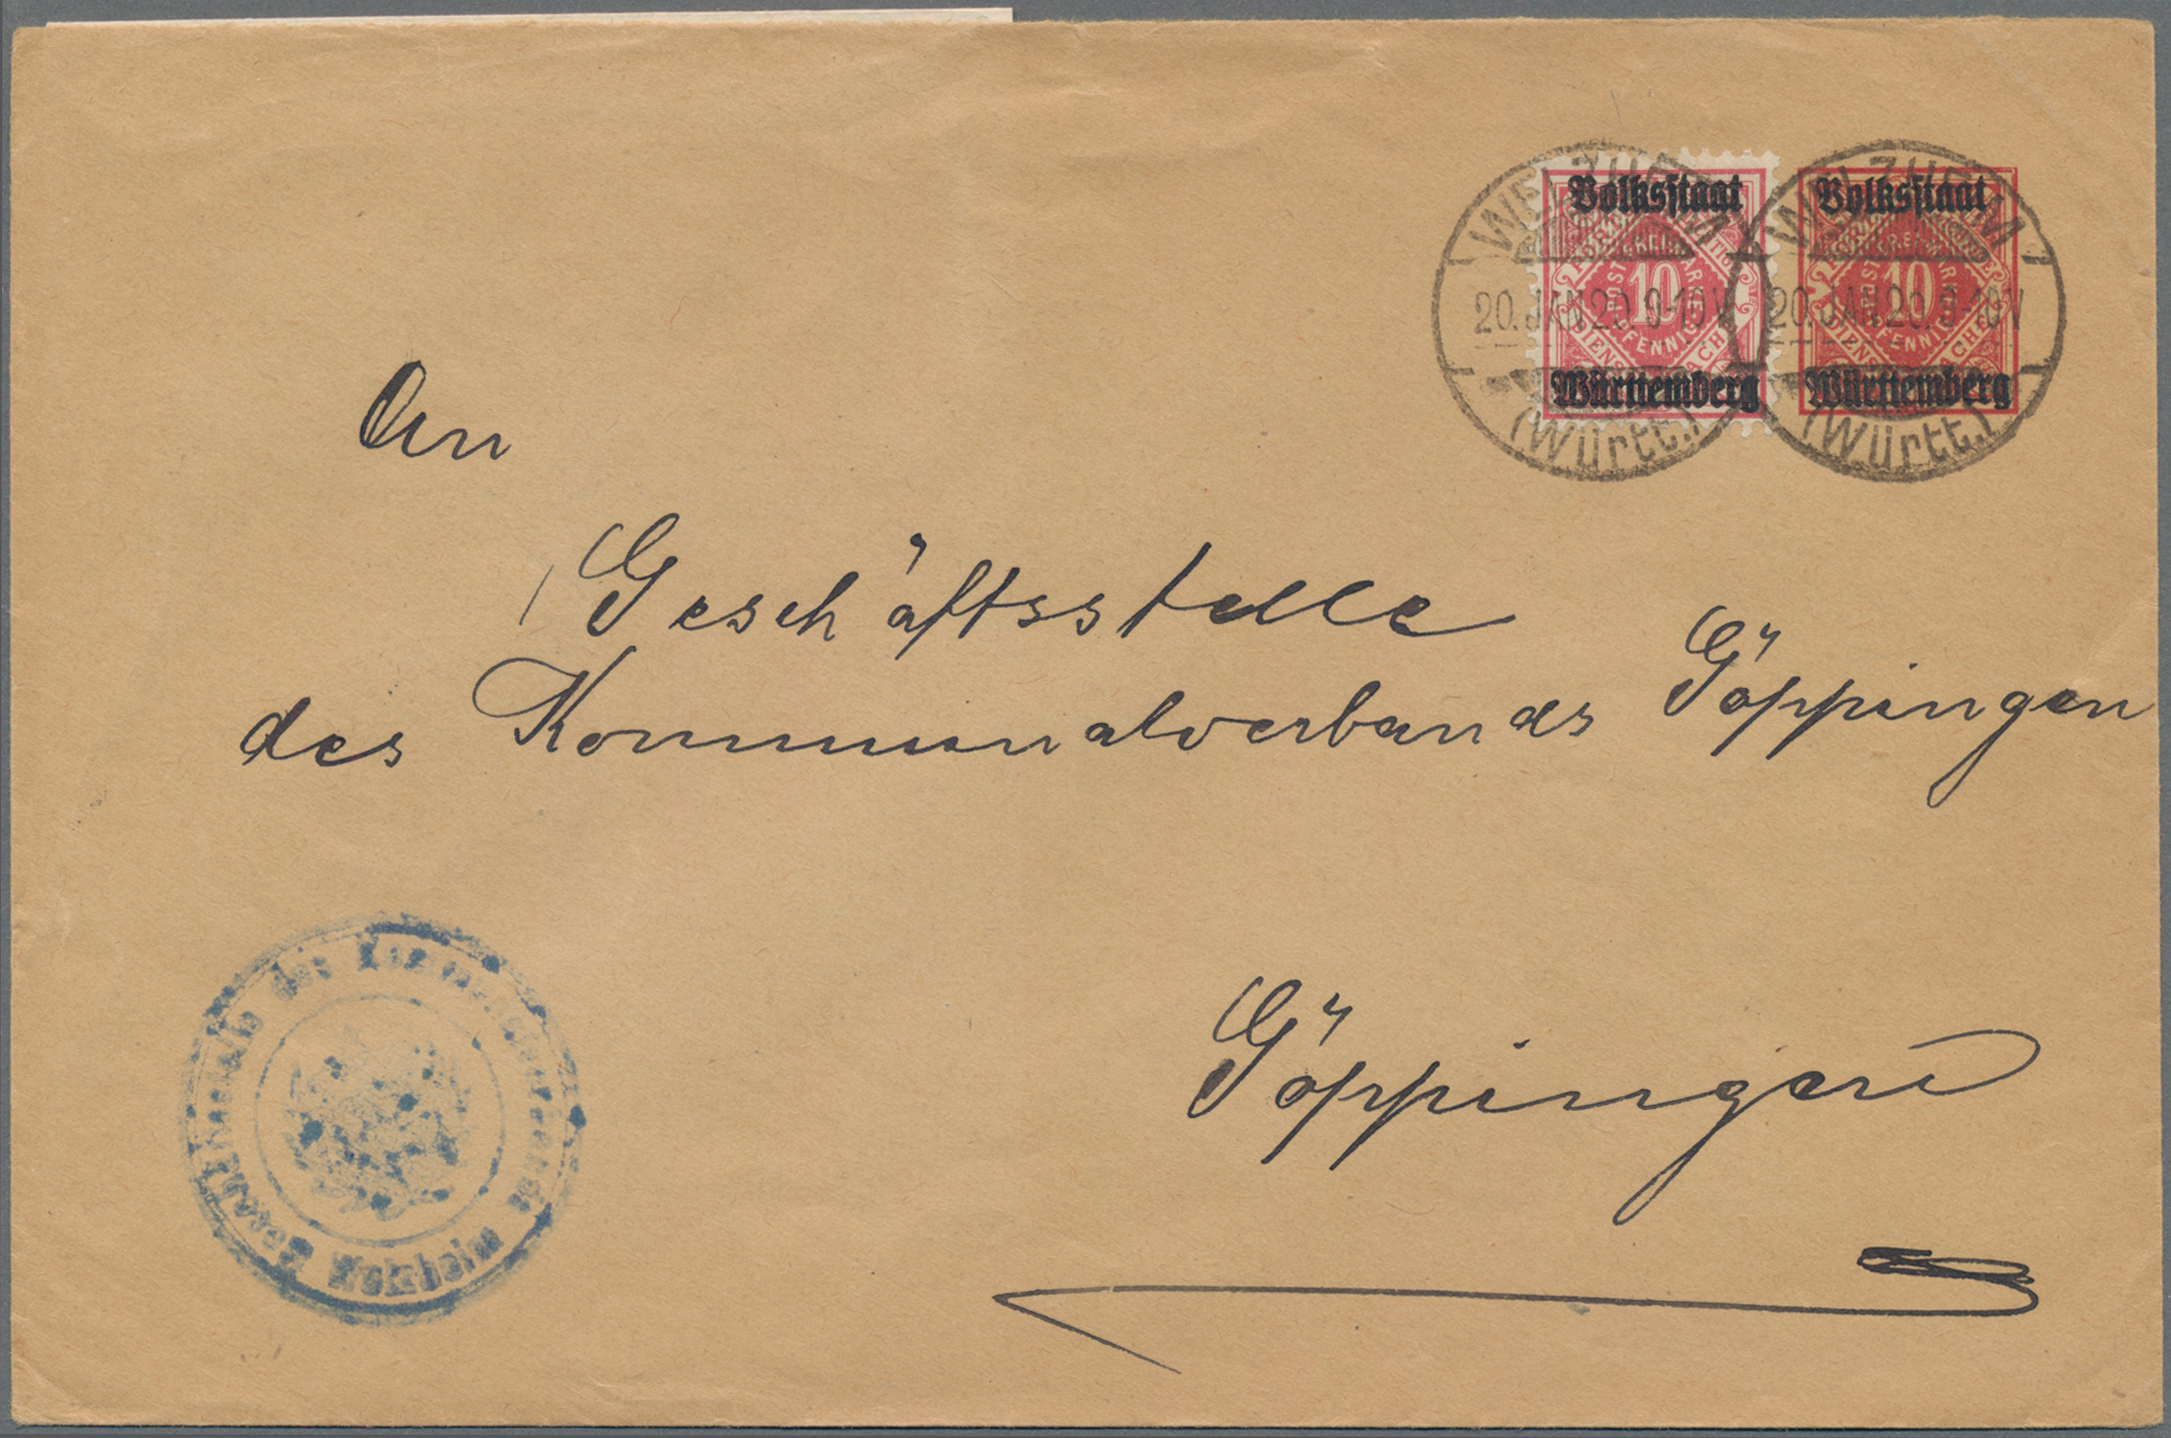 WELZHEIM
20.JAN.20.9-10V
(Württ.)
WELZHEIM
20.JAN.20.9-10V
(Württ.)
Volksstaat
10
PFENNIG
Württemberg
Volksstaat
10
PFENNIG
Württemberg
An
Geschäftsstelle
des Kommunalverbands Göppingen
Göppingen
des Kommunalverbands
Welzheim